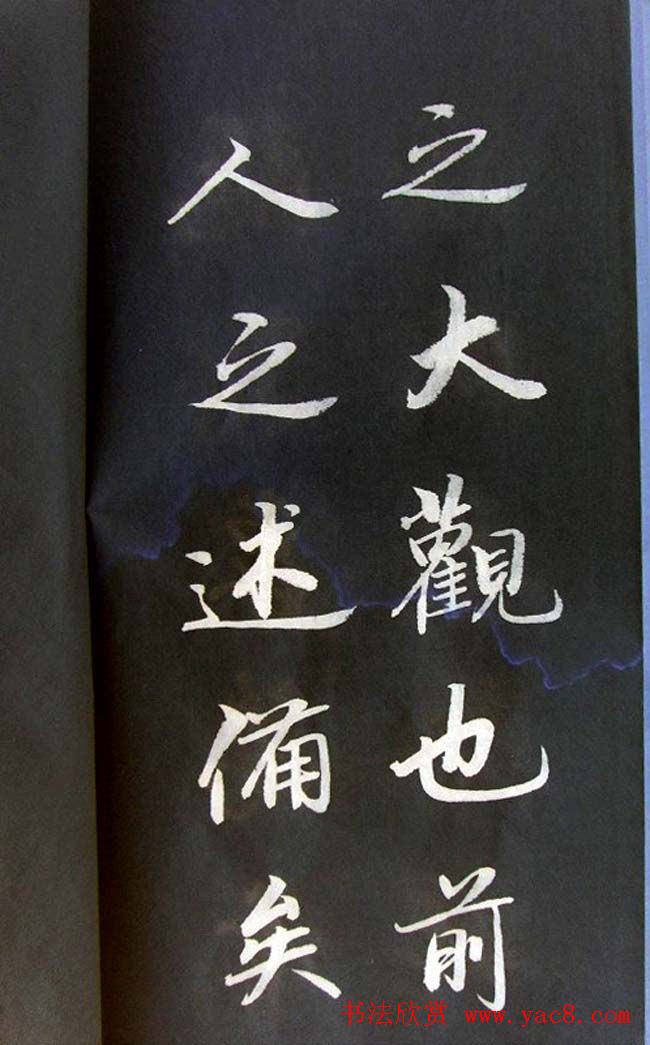 之大觀也前
人之述備矣
书法欣赏 www.yac8.com